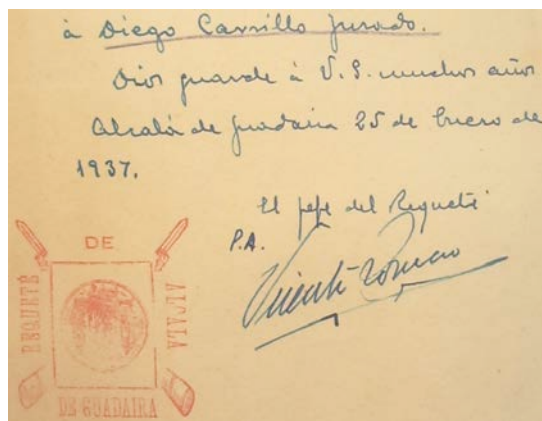 à Diego Carrillo Jurado.
Dios guarde à V.S. muchos años
Alcalá de Guadaira 25 de Enero de
1937.
El Jefe del Requeté
P.A.
Vicente Romero
DE
REQUETÉ
ALCALA
DE GUADAIRA